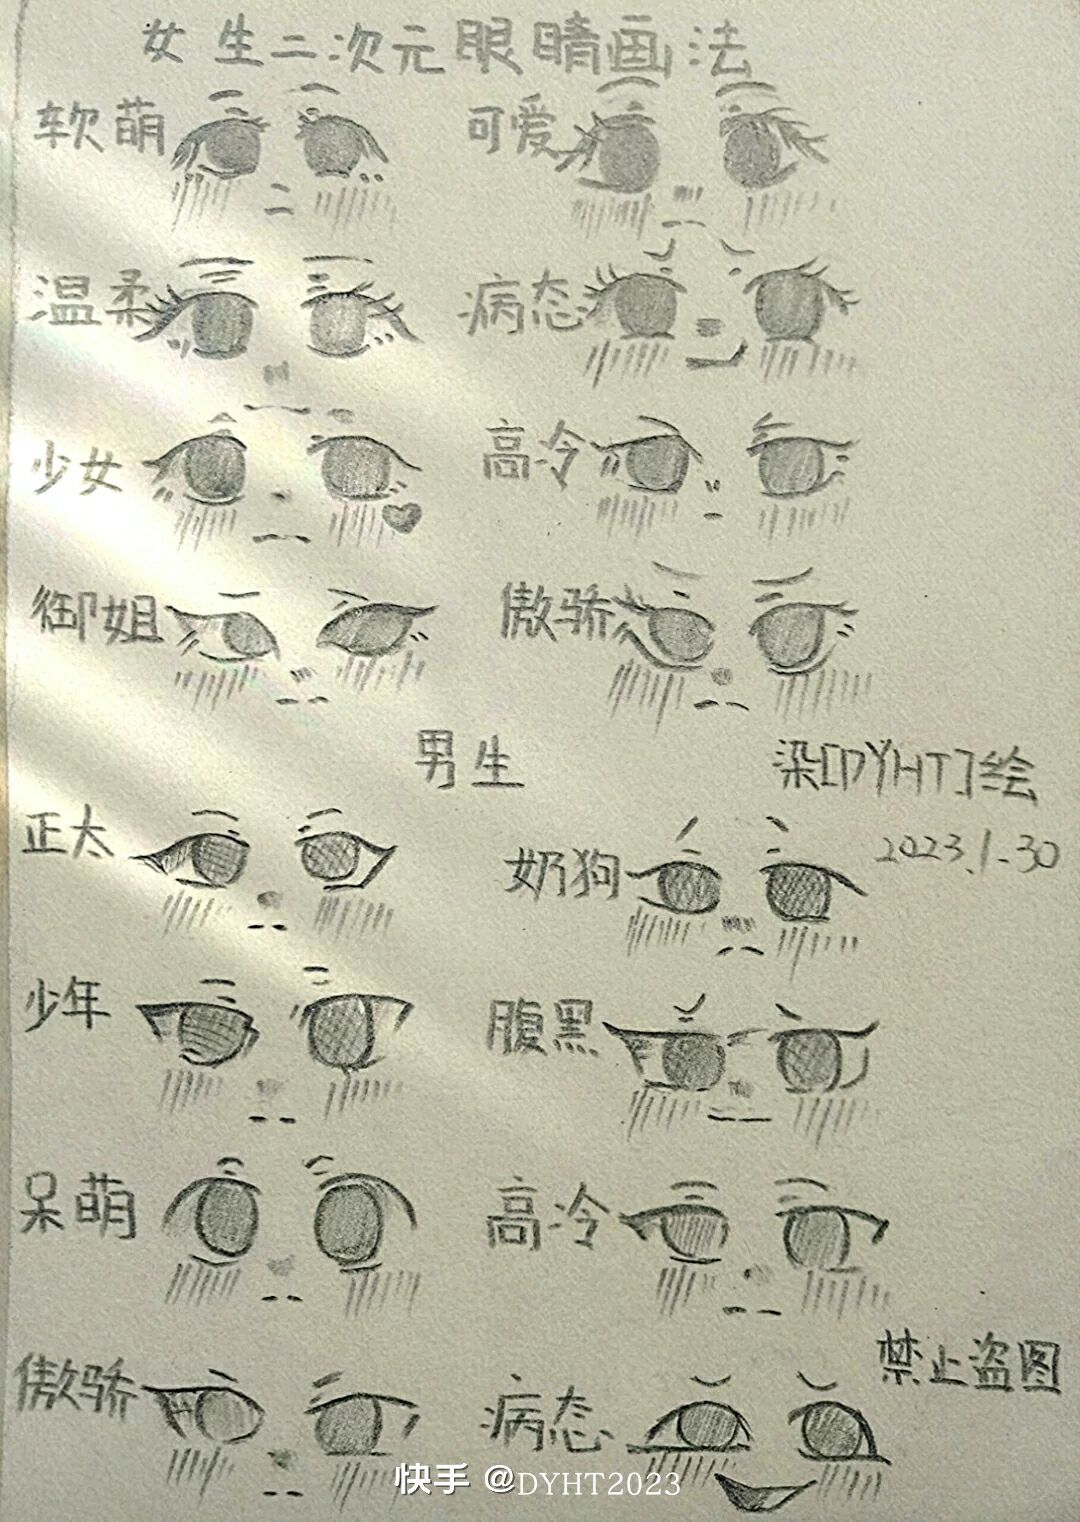 女生二次元眼睛画法
软萌
可爱
温柔
病态
少女
高冷
御姐
傲骄
男生
染[DYHT]绘
2023.1.30
正太
奶狗
少年
腹黑
呆萌
高冷
禁止盗图
傲骄
病态
快手 @DYHT2023